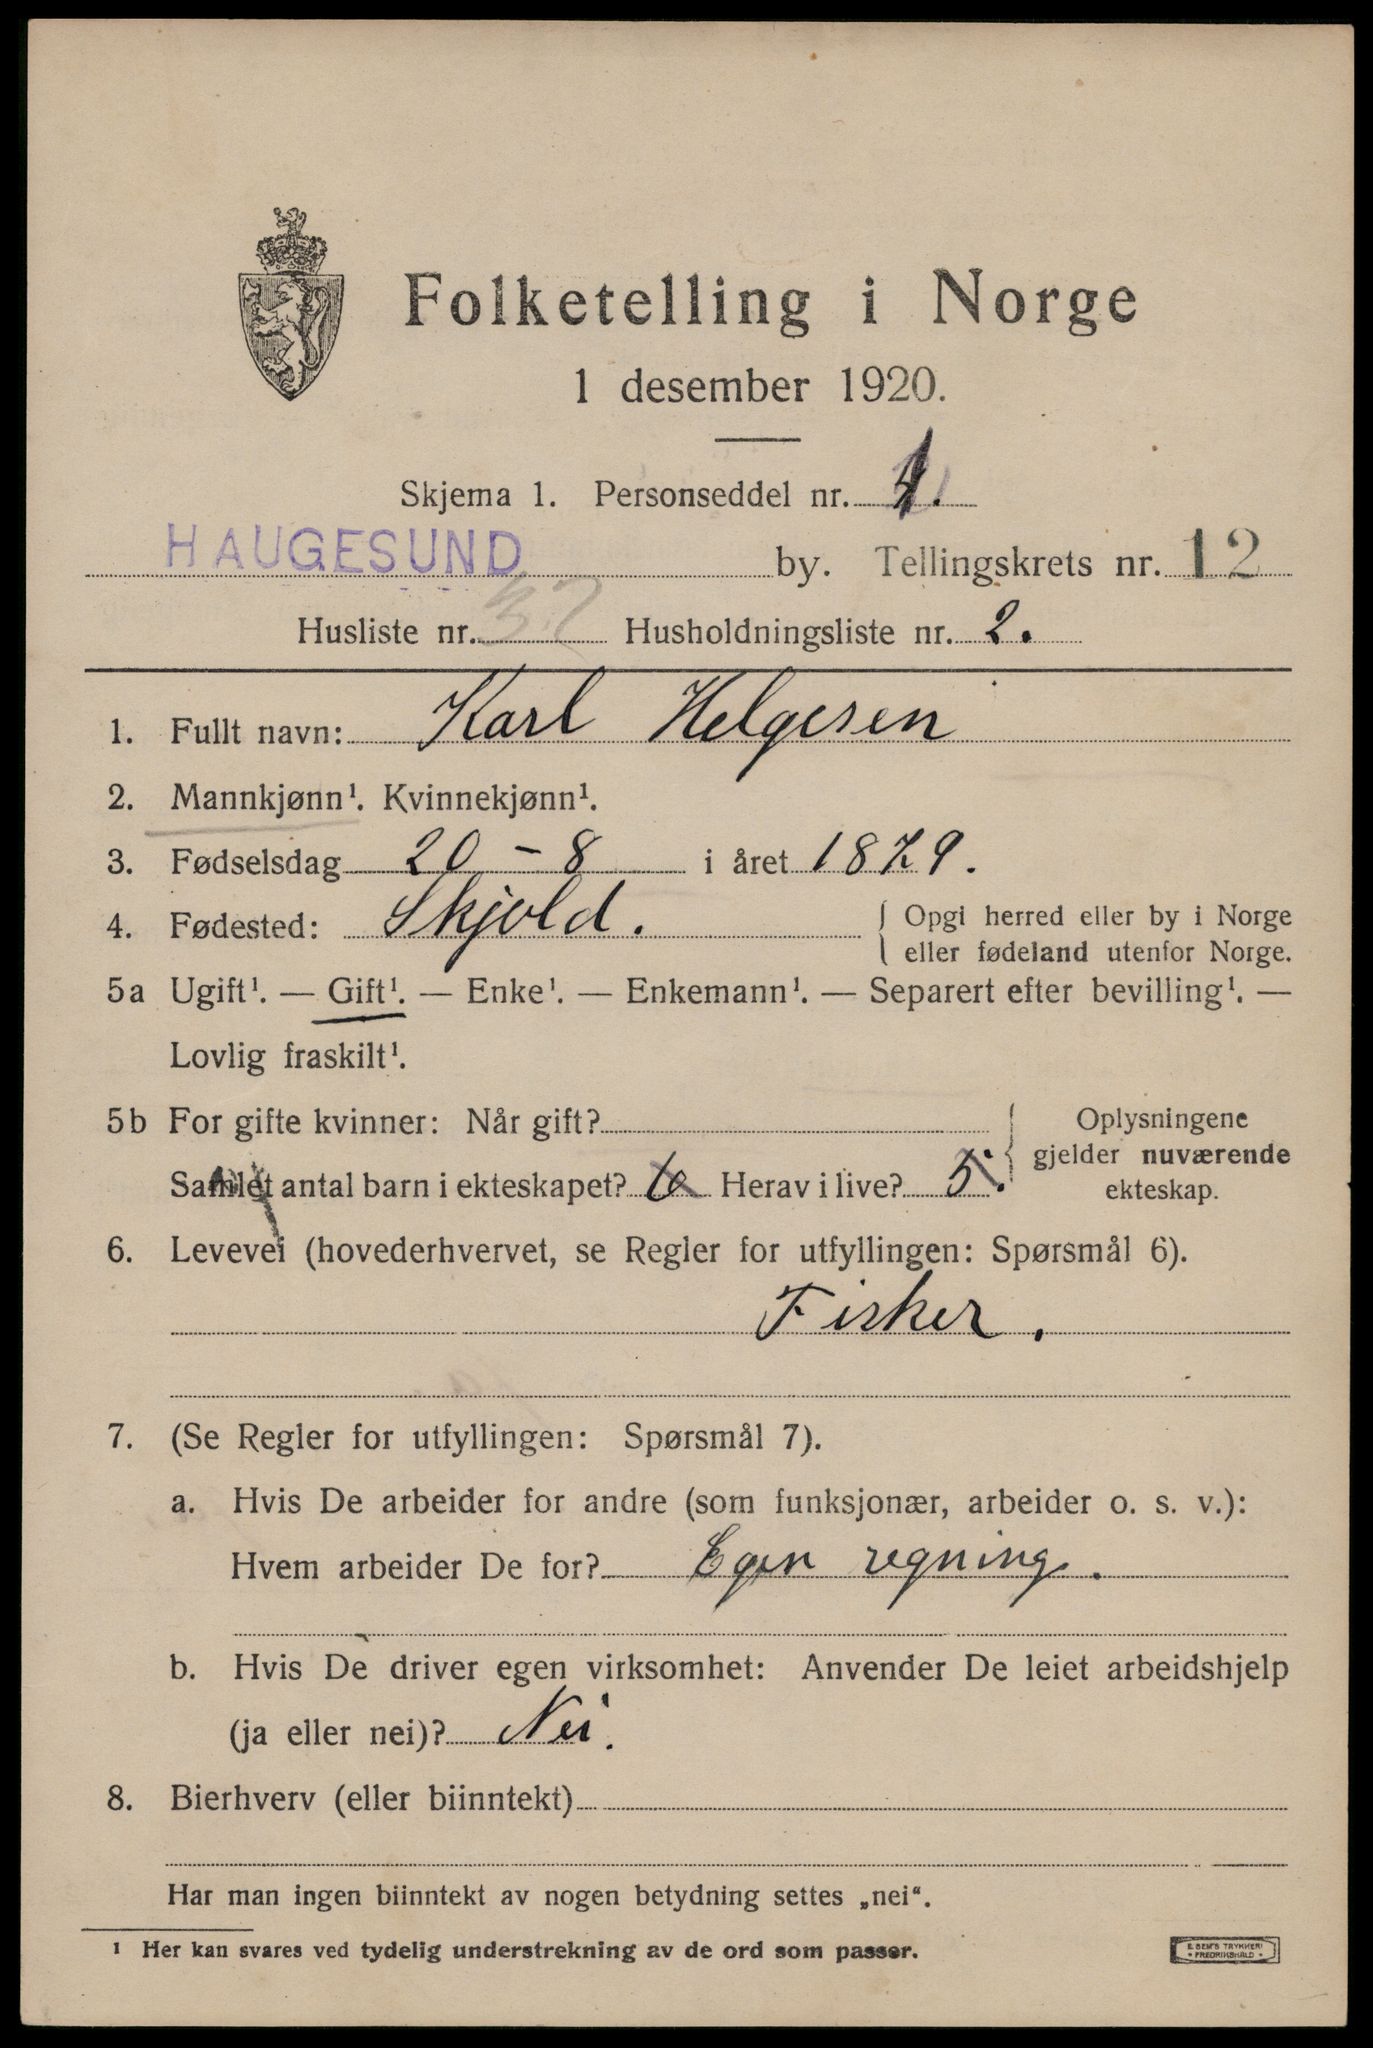 Folketelling i Norge
1 desember 1920.
Skjema 1. Personseddel nr. 1.
HAUGESUND by. Tellingskrets nr. 12
Husliste nr. 37 Husholdningsliste nr. 2.
1. Fullt navn: Karl Helgesen
2. Mannkjønn¹. Kvinnekjønn¹.
3. Fødselsdag 20 - 8 i året 1879.
4. Fødested: Skjold. Opgi herred eller by i Norge
eller fødeland utenfor Norge.
5a Ugift¹. — Gift¹. — Enke¹. — Enkemann¹. — Separert efter bevilling¹. —
Lovlig fraskilt¹.
5b For gifte kvinner: Når gift? Oplysningene
gjelder nuværende
Samlet antal barn i ekteskapet? 6 Herav i live? 5. ekteskap.
6. Levevei (hovederhvervet, se Regler for utfyllingen: Spørsmål 6).
Fisker.
7. (Se Regler for utfyllingen: Spørsmål 7).
a. Hvis De arbeider for andre (som funksjonær, arbeider o. s. v.):
Hvem arbeider De for? Egen regning.
b. Hvis De driver egen virksomhet: Anvender De leiet arbeidshjelp
(ja eller nei)? Nei.
8. Bierhverv (eller biinntekt)
Har man ingen biinntekt av nogen betydning settes „nei“.
¹ Her kan svares ved tydelig understrekning av de ord som passer.
E. SEM'S TRYKKERI
FREDRIKSHALD